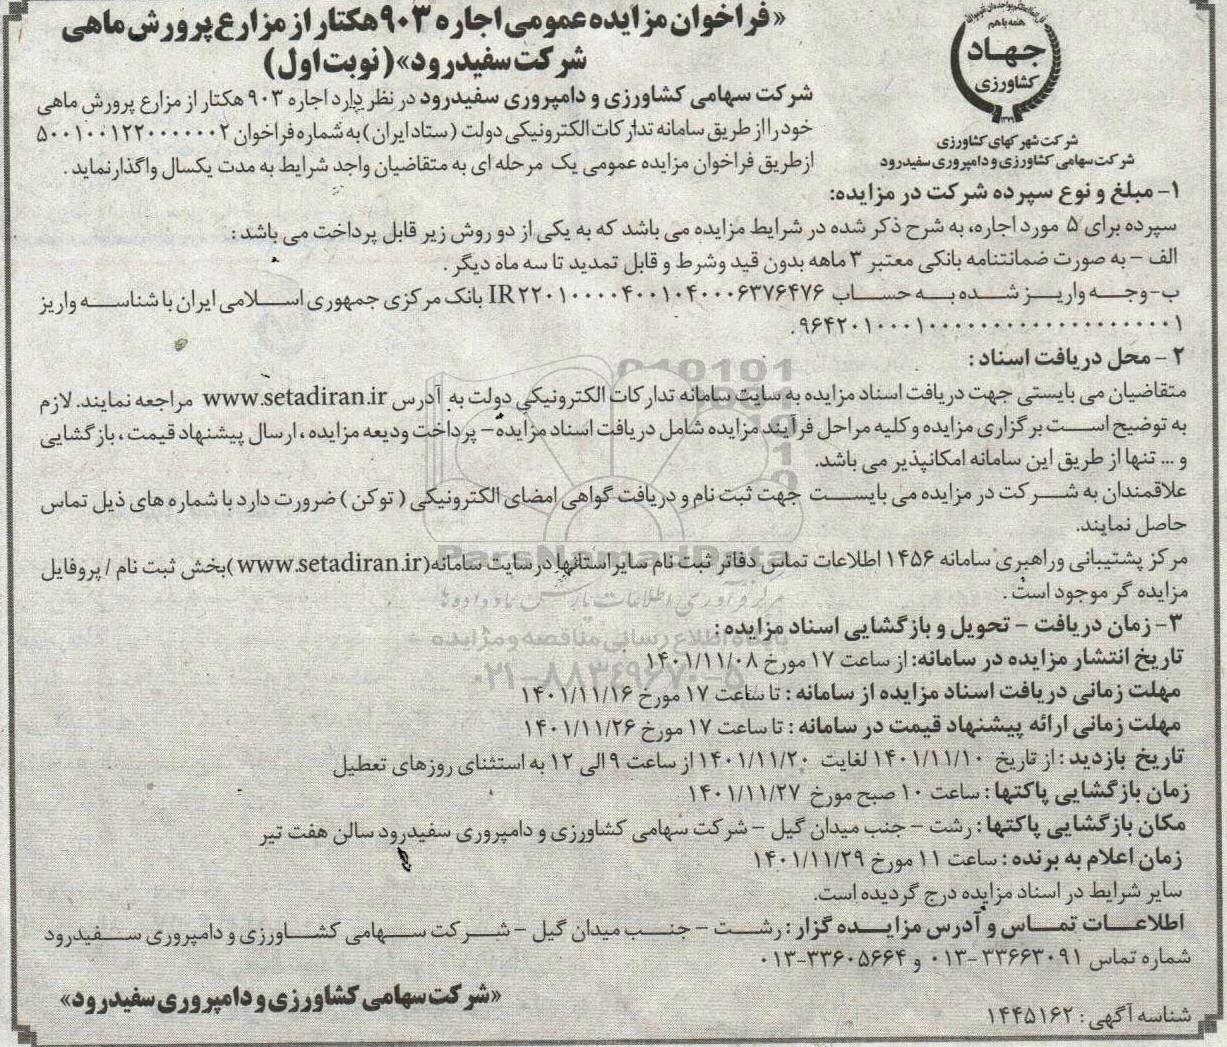 «فراخوان مزایده عمومی اجاره ۹۰۳ هکتار از مزارع پرورش ماهی
شرکت سفیدرود» (نوبت اول)
همه با هم
جهاد
کشاورزی
شرکت شهرکهای کشاورزی
شرکت سهامی کشاورزی و دامپروری سفیدرود
شرکت سهامی کشاورزی و دامپروری سفیدرود در نظر دارد اجاره ۹۰۳ هکتار از مزارع پرورش ماهی
خود را از طریق سامانه تدارکات الکترونیکی دولت (ستاد ایران) به شماره فراخوان ۵۰۰۱۰۰۱۲۲۰۰۰۰۰۰۲
از طریق فراخوان مزایده عمومی یک مرحله ای به متقاضیان واجد شرایط به مدت یکسال واگذار نماید.
۱- مبلغ و نوع سپرده شرکت در مزایده:
سپرده برای ۵ مورد اجاره، به شرح ذکر شده در شرایط مزایده می باشد که به یکی از دو روش زیر قابل پرداخت می باشد:
الف - به صورت ضمانتنامه بانکی معتبر ۳ ماهه بدون قید وشرط و قابل تمدید تا سه ماه دیگر.
ب- وجه واریز شده به حساب IR۲۲۰۱۰۰۰۰۴۰۰۱۰۴۰۰۰۶۳۷۶۴۷۶ بانک مرکزی جمهوری اسلامی ایران با شناسه واریز
۲ - محل دریافت اسناد:
متقاضیان می بایستی جهت دریافت اسناد مزایده به سایت سامانه تدارکات الکترونیکی دولت به آدرس www.setadiran.ir مراجعه نمایند. لازم
به توضیح است برگزاری مزایده و کلیه مراحل فرآیند مزایده شامل دریافت اسناد مزایده- پرداخت ودیعه مزایده، ارسال پیشنهاد قیمت، بازگشایی
و ... تنها از طریق این سامانه امکانپذیر می باشد.
علاقمندان به شرکت در مزایده می بایست جهت ثبت نام و دریافت گواهی امضای الکترونیکی (توکن) ضرورت دارد با شماره های ذیل تماس
حاصل نمایند.
مرکز پشتیبانی و راهبری سامانه ۱۴۵۶ اطلاعات تماس دفاتر ثبت نام سایر استانها در سایت سامانه (www.setadiran.ir) بخش ثبت نام / پروفایل
مزایده گر موجود است.
۳- زمان دریافت - تحویل و بازگشایی اسناد مزایده:
تاریخ انتشار مزایده در سامانه: از ساعت ۱۷ مورخ ۱۴۰۱/۱۱/۰۸
مهلت زمانی دریافت اسناد مزایده از سامانه: تا ساعت ۱۷ مورخ ۱۴۰۱/۱۱/۱۶
مهلت زمانی ارائه پیشنهاد قیمت در سامانه: تا ساعت ۱۷ مورخ ۱۴۰۱/۱۱/۲۶
تاریخ بازدید: از تاریخ ۱۴۰۱/۱۱/۱۰ لغایت ۱۴۰۱/۱۱/۲۰ از ساعت ۹ الی ۱۲ به استثنای روزهای تعطیل
زمان بازگشایی پاکتها: ساعت ۱۰ صبح مورخ ۱۴۰۱/۱۱/۲۷
مکان بازگشایی پاکتها: رشت - جنب میدان گیل - شرکت سهامی کشاورزی و دامپروری سفیدرود سالن هفت تیر
زمان اعلام به برنده: ساعت ۱۱ مورخ ۱۴۰۱/۱۱/۲۹
سایر شرایط در اسناد مزایده درج گردیده است.
اطلاعات تماس و آدرس مزایده گزار: رشت - جنب میدان گیل - شرکت سهامی کشاورزی و دامپروری سفیدرود
شماره تماس ۳۳۶۶۳۰۹۱-۰۱۳ و ۳۳۶۰۵۶۶۴-۰۱۳
«شرکت سهامی کشاورزی و دامپروری سفیدرود»
شناسه آگهی: ۱۴۴۵۱۶۲
ParsNamadData
پایگاه اطلاع رسانی مناقصه و مزایده
۰۲۱-۸۸۳۴۹۶۷۰-۵